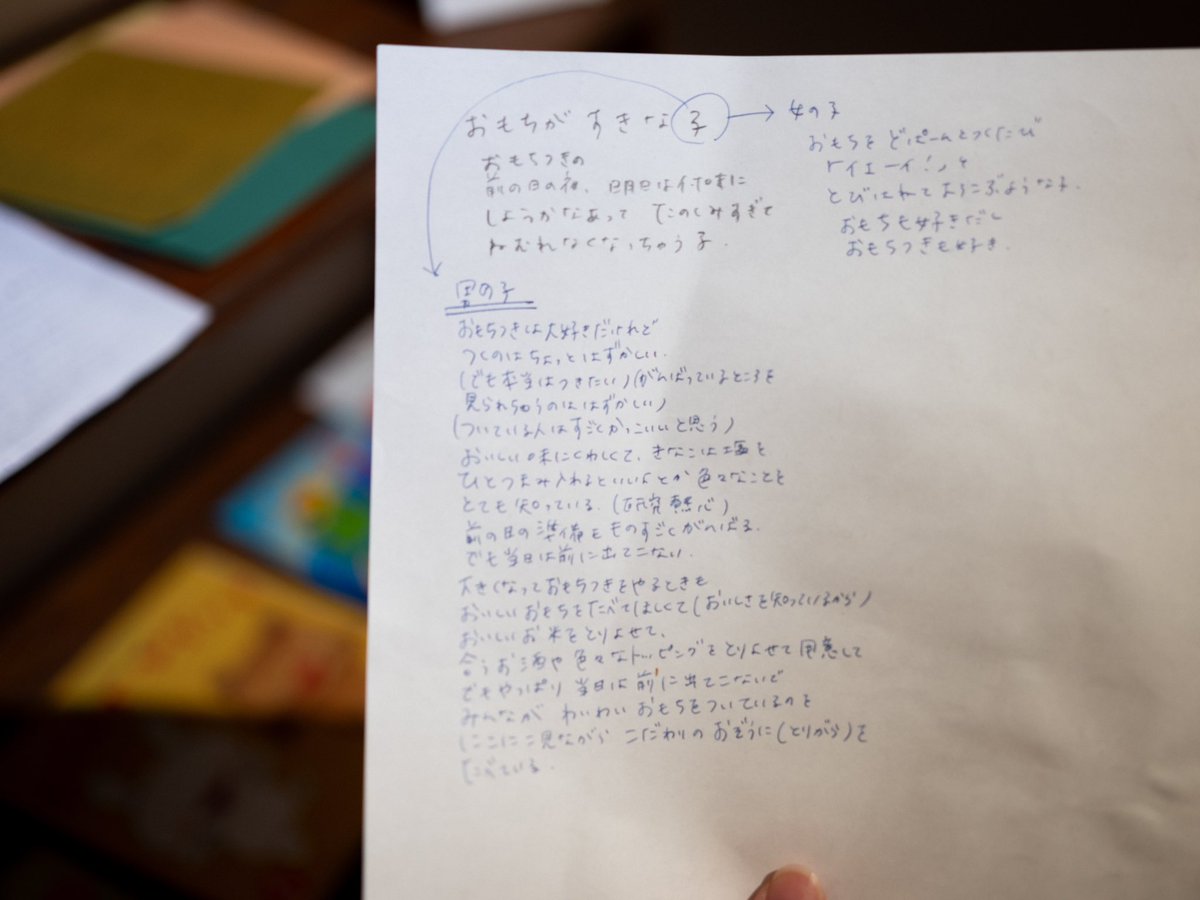 おもちがすきな子
おもちつきの
前の日の夜、明日は何味に
しようかなあって たのしみすぎて
ねむれなくなっちゃう子.
女の子
おもちを どぱーんとつくたび
「イエーイ!」と
とびはねてよろこぶような子.
おもちも好きだし
おもちつきも好き.
男の子
おもちつきは大好きだけれど
つくのはちょっとはずかしい.
(でも本当はつきたい)(がんばっているところを
見られちゃうのははずかしい)
(ついている人はすごくかっこいいと思う)
おいしい味にくわしくて、きなこは塩を
ひとつまみ入れるといいよとか 色々なことを
とても知っている. (研究熱心)
前の日の準備をものすごくがんばる.
でも当日は前に出てこない.
大きくなっておもちつきをやるときも
おいしいおもちをたべてほしくて(おいしさを知っているから)
おいしいお米をとりよせて、
合うお酒や色々なトッピングをとりよせて用意して
でもやっぱり当日は前に出てこないで
みんなが わいわい おもちをついているのを
にこにこ見ながら こだわりの おぞうに(とりがら)を